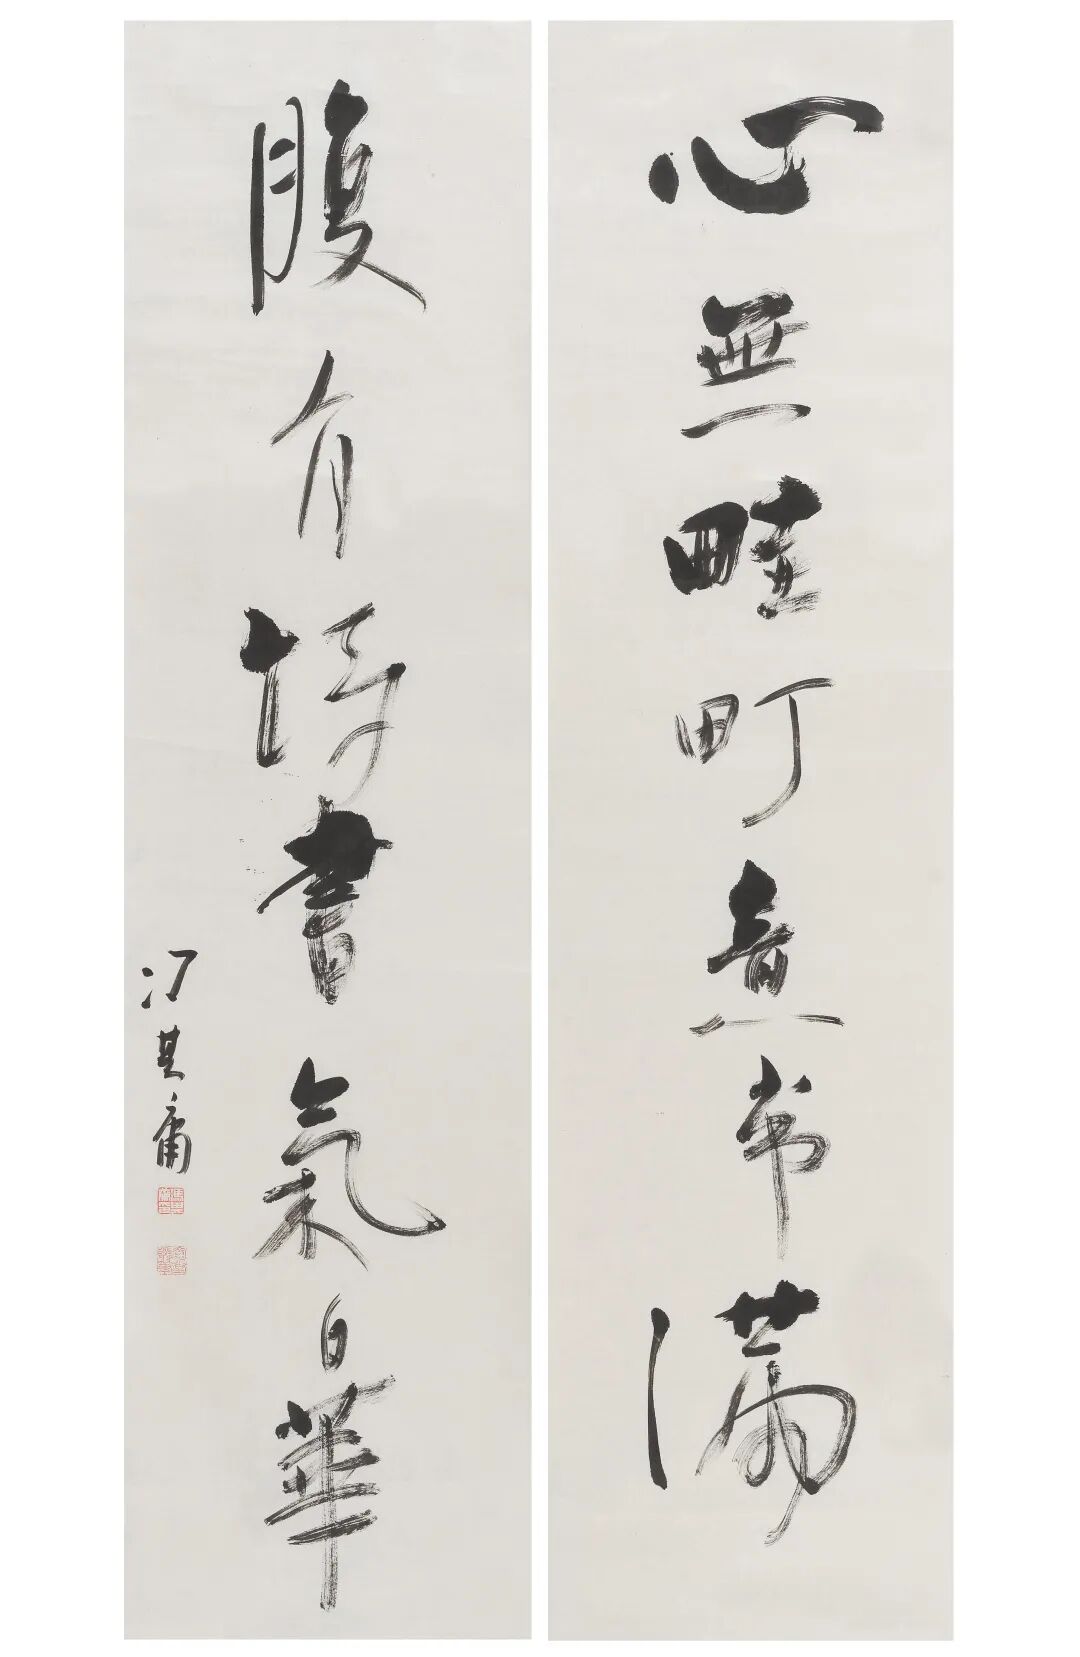 心無畦町意常滿
腹有詩書氣自華
馮其庸